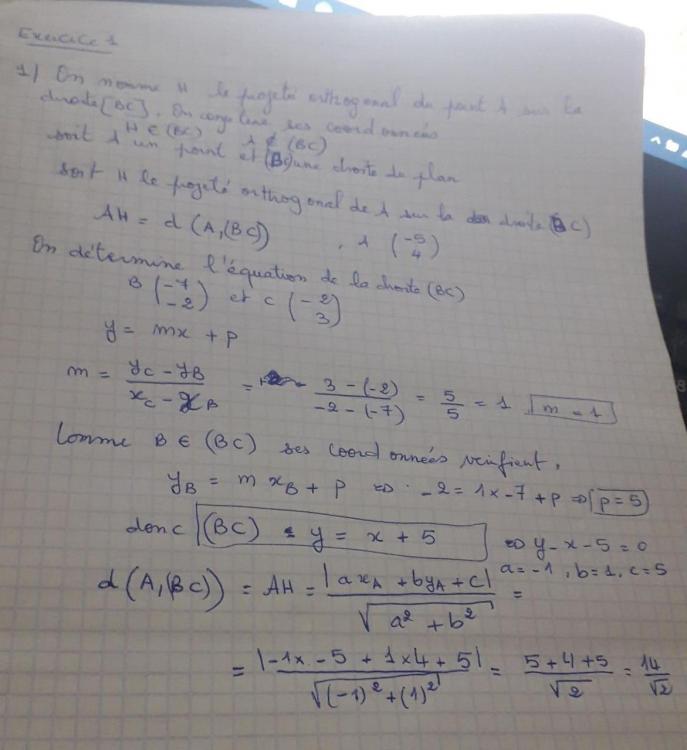 Exercice 1
1) On nomme H le projeté orthogonal du point A sur la
droite [BC]. On ses coordonnées
H ∈ (BC) A ∉ (BC)
soit A un point et (BC) une droite du plan
soit H le projeté orthogonal de A sur la droite (BC)
AH = d(A,(BC)) , A (-5 4)
On détermine l'équation de la droite (BC)
B (-7 -2) et C (-2 3)
y = mx + p
m = yC - yB / xC - xB = 3 - (-2) / -2 - (-7) = 5/5 = 1 m = 1
Comme B ∈ (BC) ses coordonnées vérifient,
yB = m xB + p ⇔ -2 = 1x-7 + p ⇒ p = 5
donc (BC) : y = x + 5 ⇔ y - x - 5 = 0
a = -1, b = 1, c = 5
d(A,(BC)) = AH = |a xA + b yA + c| / √a² + b² =
= |-1x -5 + 1x4 + 5| / √(-1)² + (1)² = 5+4+5 / √2 = 14/√2